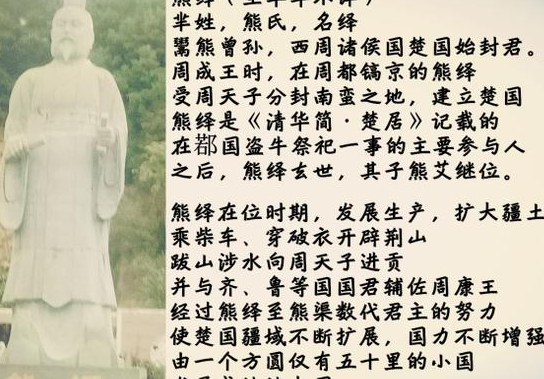 芈姓，熊氏，名绎
鬻熊曾孙，西周诸侯国楚国始封君。
周成王时，在周都镐京的熊绎
受周天子分封南蛮之地，建立楚国
熊绎是《清华简·楚居》记载的
在鄀国盗牛祭祀一事的主要参与人
之后，熊绎玄世，其子熊艾继位。
熊绎在位时期，发展生产，扩大疆土
乘柴车、穿破衣开辟荆山
跋山涉水向周天子进贡
并与齐、鲁等国国君辅佐周康王
经过熊绎至熊渠数代君主的努力
使楚国疆域不断扩展，国力不断增强
由一个方圆仅有五十里的小国